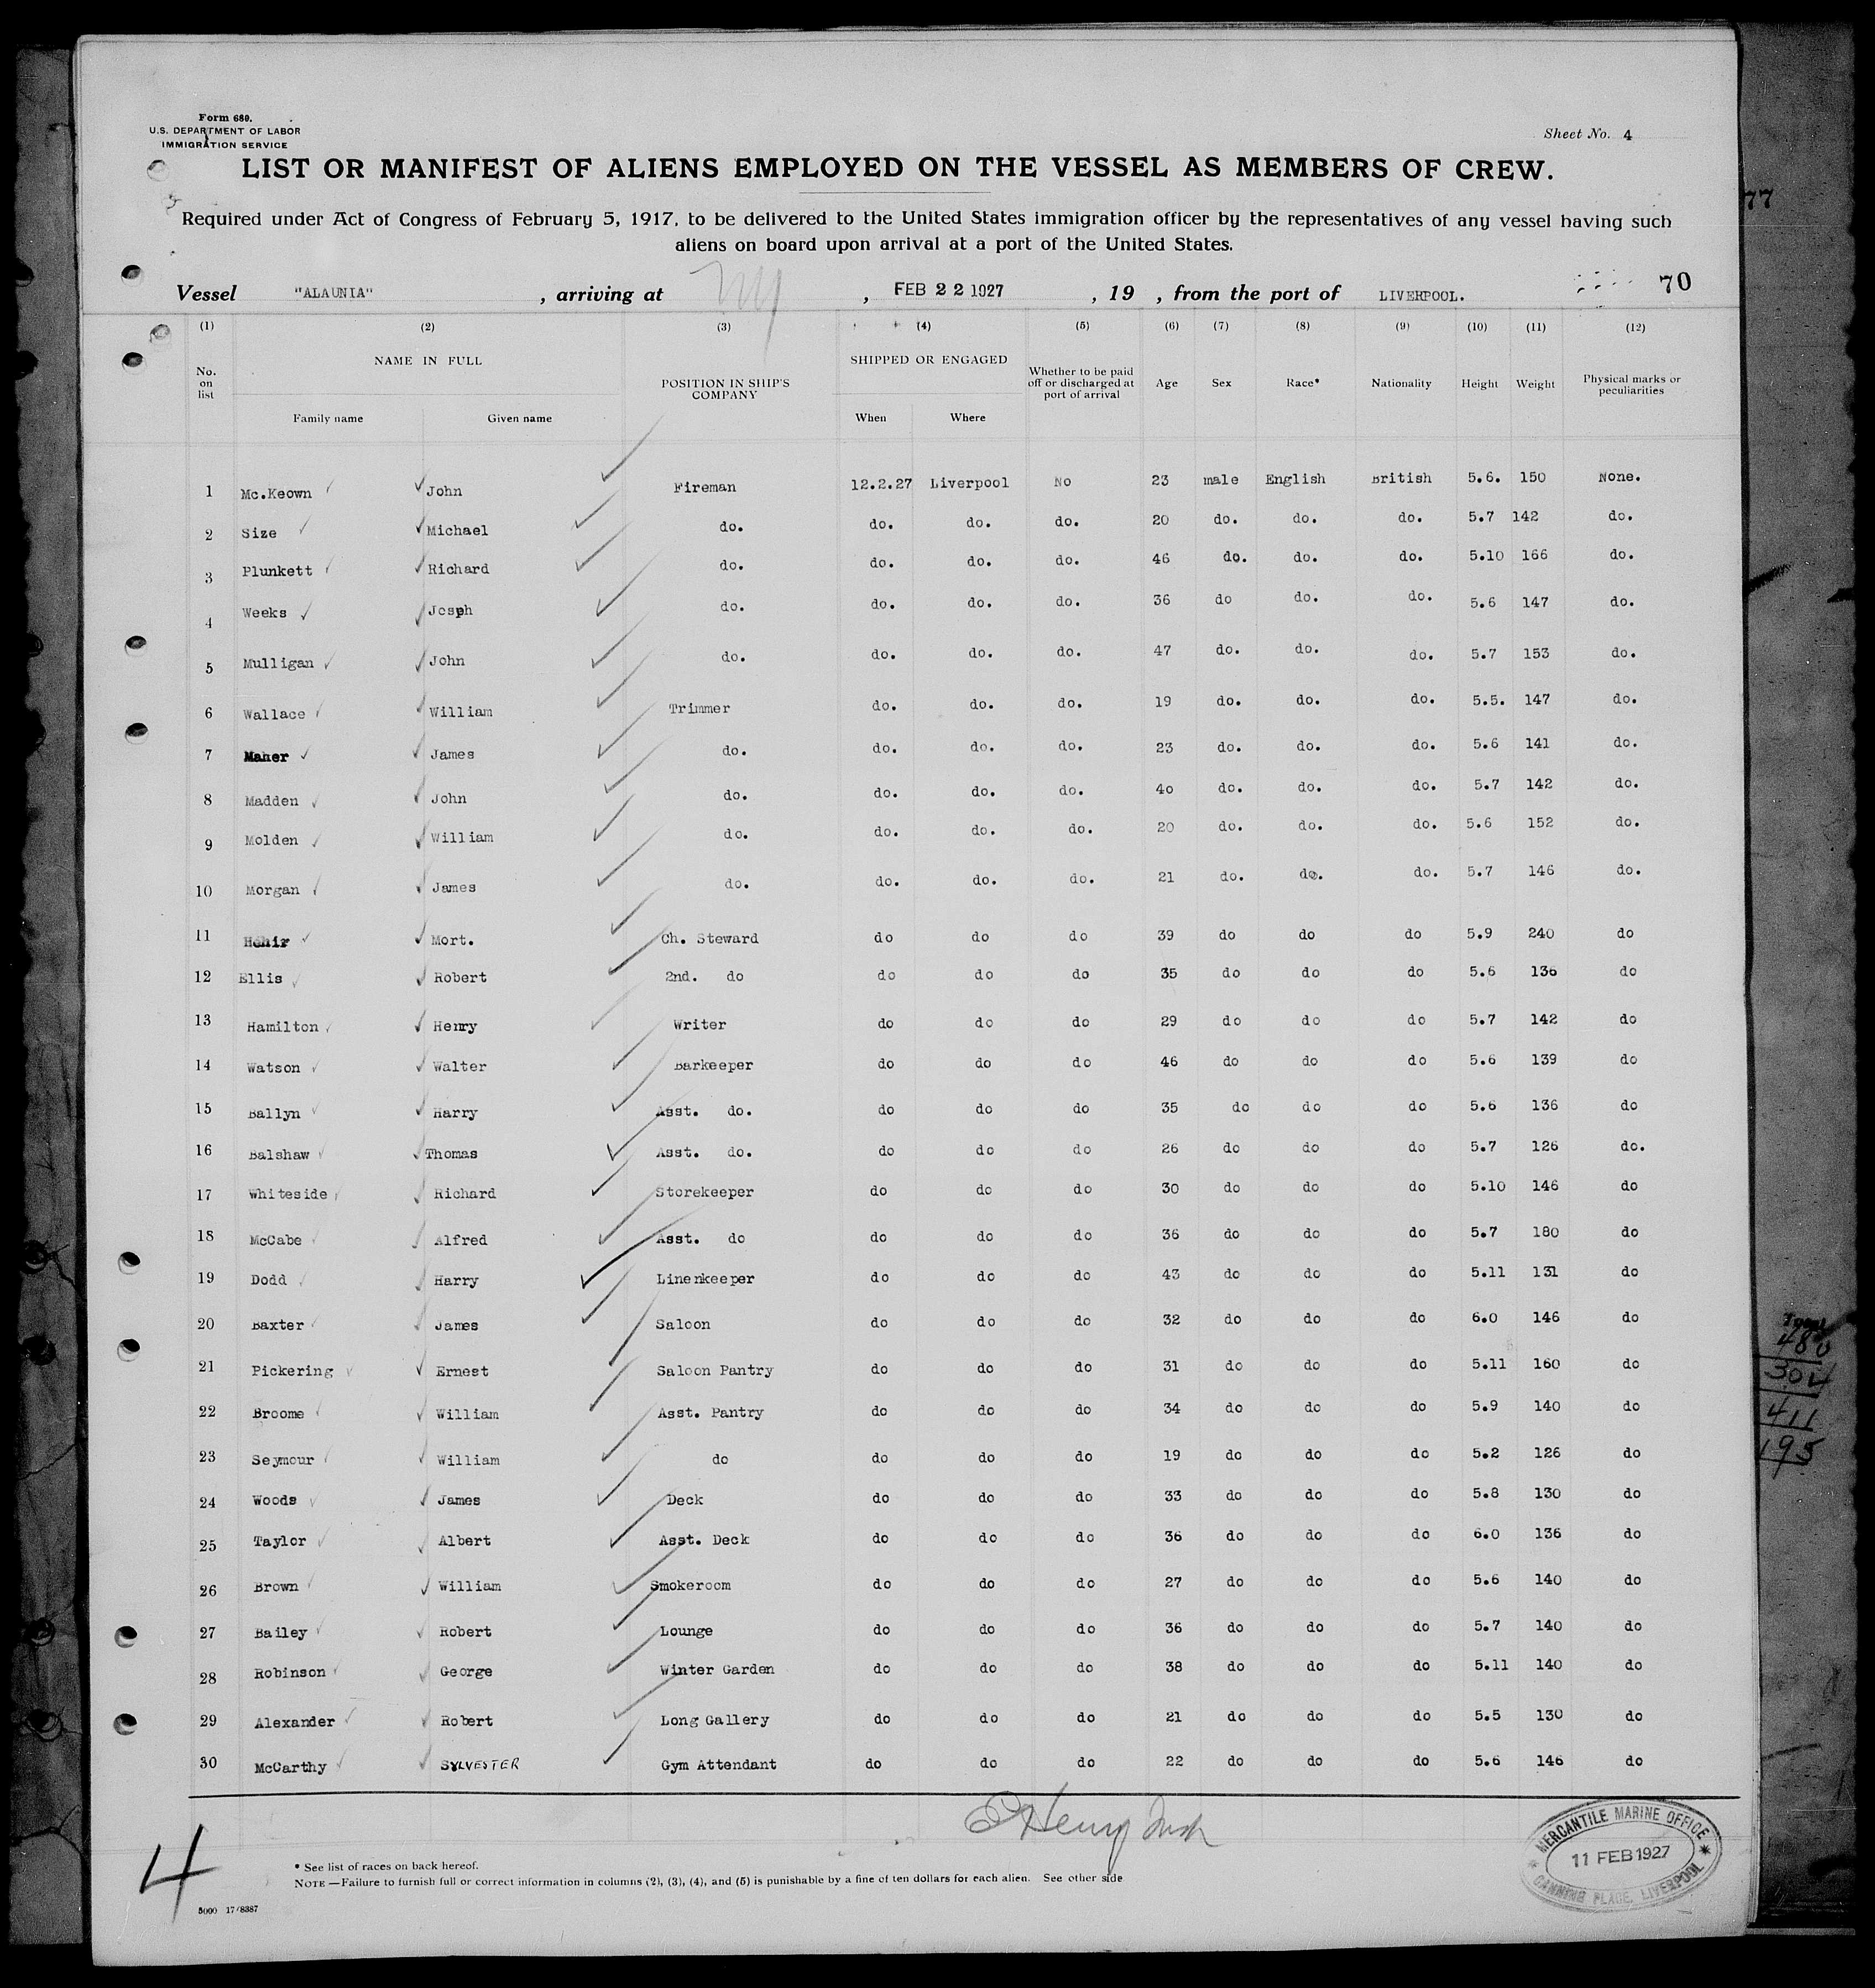 Form 680.
U.S. DEPARTMENT OF LABOR
IMMIGRATION SERVICE
Sheet No. 4
LIST OR MANIFEST OF ALIENS EMPLOYED ON THE VESSEL AS MEMBERS OF CREW.
Required under Act of Congress of February 5, 1917, to be delivered to the United States immigration officer by the representatives of any vessel having such
aliens on board upon arrival at a port of the United States.
77
Vessel "ALAUNIA" , arriving at NY , FEB 22 1927 , 19 , from the port of LIVERPOOL. 70
(1) (2) (3) (4) (5) (6) (7) (8) (9) (10) (11) (12)
No. on list NAME IN FULL Family name Given name POSITION IN SHIP'S COMPANY SHIPPED OR ENGAGED When Where Whether to be paid off or discharged at port of arrival Age Sex Race* Nationality Height Weight Physical marks or peculiarities
1 Mc.Keown John Fireman 12.2.27 Liverpool No 23 male English British 5.6. 150 None.
2 Size Michael do. do. do. do. 20 do. do. do. 5.7 142 do.
3 Plunkett Richard do. do. do. do. 46 do. do. do. 5.10 166 do.
4 Weeks Josph do. do. do. do. 36 do do. do. 5.6 147 do.
5 Mulligan John do. do. do. do. 47 do. do. do. 5.7 153 do.
6 Wallace William Trimmer do. do. do. 19 do. do. do. 5.5. 147 do.
7 Maher James do. do. do. do. 23 do. do. do. 5.6 141 do.
8 Madden John do. do. do. do. 40 do. do. do. 5.7 142 do.
9 Molden William do. do. do. do. 20 do. do. do. 5.6 152 do.
10 Morgan James do. do. do. do. 21 do. do. do. 5.7 146 do.
11 Mort. Ch. Steward do do do 39 do do do 5.9 240 do
12 Ellis Robert 2nd. do do do do 35 do do do 5.6 136 do
13 Hamilton Henry Writer do do do 29 do do do 5.7 142 do
14 Watson Walter Barkeeper do do do 46 do do do 5.6 139 do
15 Ballyn Harry Asst. do. do do do 35 do do do 5.6 136 do
16 Balshaw Thomas Asst. do. do do do 26 do do do 5.7 126 do.
17 Whiteside Richard Storekeeper do do do 30 do do do 5.10 146 do
18 McCabe Alfred Asst. do do do do 36 do do do 5.7 180 do
19 Dodd Harry Linenkeeper do do do 43 do do do 5.11 131 do
20 Baxter James Saloon do do do 32 do do do 6.0 146 do
21 Pickering Ernest Saloon Pantry do do do 31 do do do 5.11 160 do
22 Broome William Asst. Pantry do do do 34 do do do 5.9 140 do
23 Seymour William do do do do 19 do do do 5.2 126 do
24 Woods James Deck do do do 33 do do do 5.8 130 do
25 Taylor Albert Asst. Deck do do do 36 do do do 6.0 136 do
26 Brown William Smokeroom do do do 27 do do do 5.6 140 do
27 Bailey Robert Lounge do do do 36 do do do 5.7 140 do
28 Robinson George Winter Garden do do do 38 do do do 5.11 140 do
29 Alexander Robert Long Gallery do do do 21 do do do 5.5 130 do
30 McCarthy SYLVESTER Gym Attendant do do do 22 do do do 5.6 146 do
Total
480
304
411
195
Henry
MERCANTILE MARINE OFFICE
11 FEB 1927
CANNING PLACE, LIVERPOOL
4
* See list of races on back hereof.
NOTE —Failure to furnish full or correct information in columns (2), (3), (4), and (5) is punishable by a fine of ten dollars for each alien. See other side
5000 17/8387